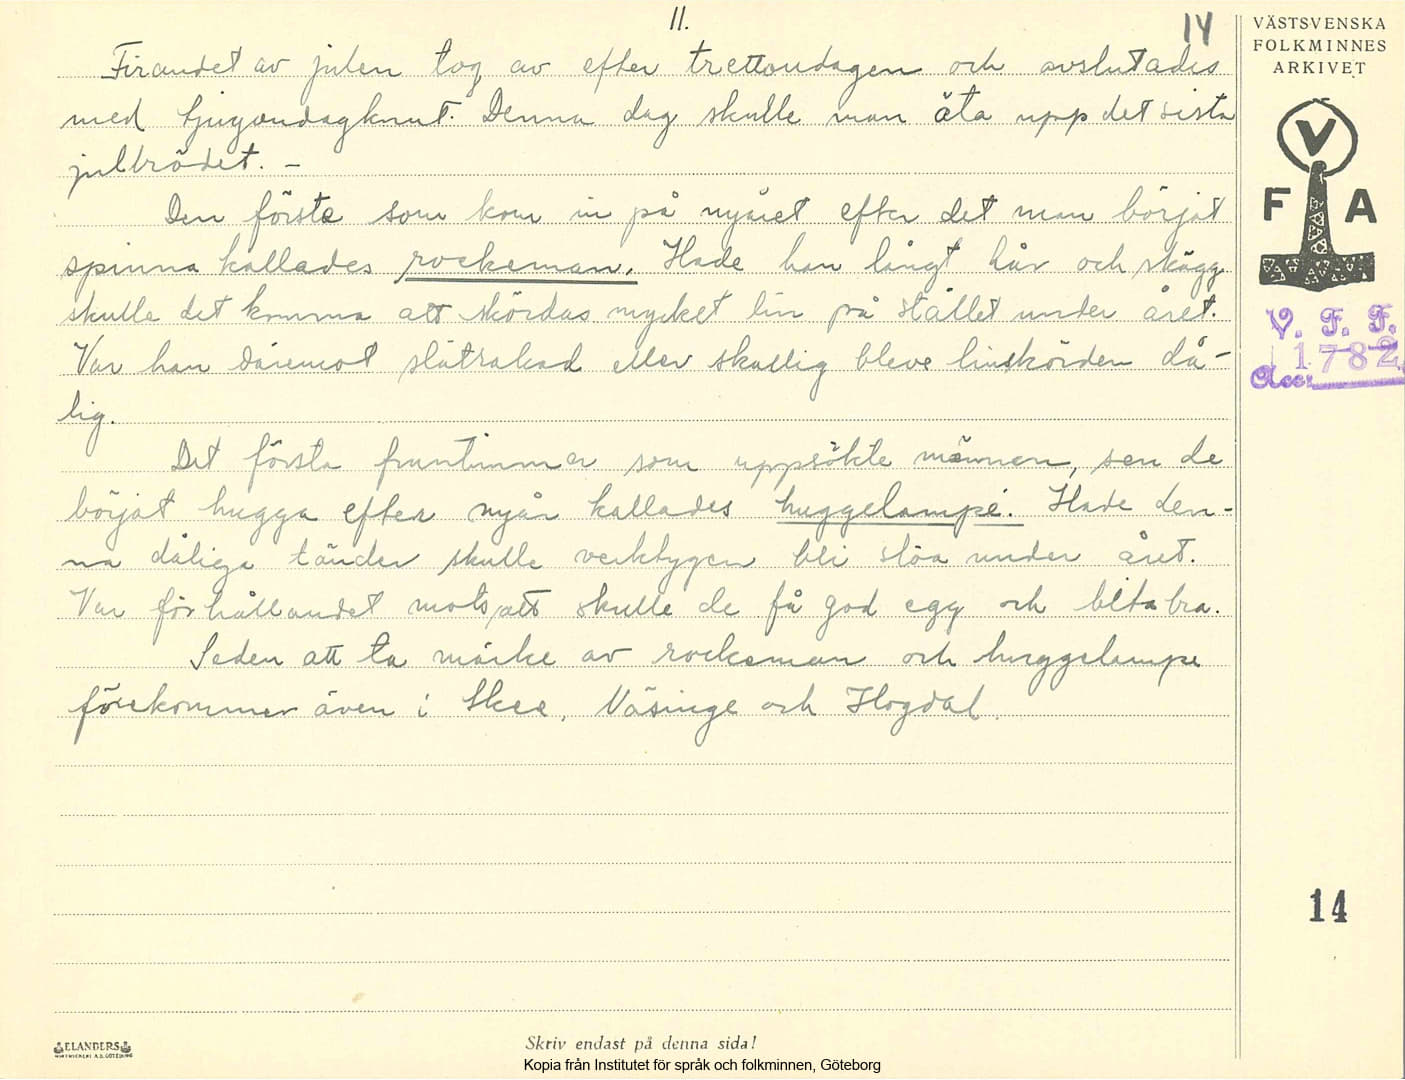 11.
14
VÄSTSVENSKA
FOLKMINNES
ARKIVET
Firandet av julen tog av efter trettondagen och avslutades
med tjugondagknut. Denna dag skulle man äta upp det sista
julbrödet. –
Den första som kom in på nyåret efter det man börjat
spinna kallades rockeman. Hade han långt hår och skägg
skulle det komma att skördas mycket lin på stället under året.
Var han däremot slätrakad eller skallig bleve linskörden då-
lig.
Det första fruntimmer som uppsökte männen, sen de
börjat hugga efter nyår kallades huggelampe. Hade den-
na dåliga tänder skulle verktygen bli slöa under året.
Var förhållandet motsatt skulle de få god egg och bita bra.
Seden att ta märke av rockeman och huggelampe
förekommer även i Skee, Näsinge och Hogdal.
V
F A
V. F. F.
1782
Acc:
14
ELANDERS
Skriv endast på denna sida!
Kopia från Institutet för språk och folkminnen, Göteborg